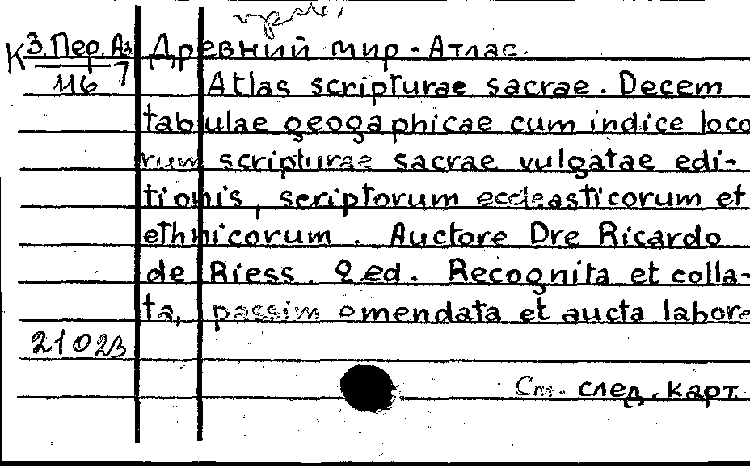 К 3. Пер. Аз Древний мир - Атлас.
116 7 Atlas scripturae sacrae. Decem
tabulae geographicae cum indice loco
rum scripturae sacrae vulgatae edi-
tionis, scriptorum eccleasticorum et
ethnicorum. Auctore Dre Ricardo
de Riess. 2 ed. Recognita et colla-
ta, passim omendata et aucta labore
21023
См. след. карт.